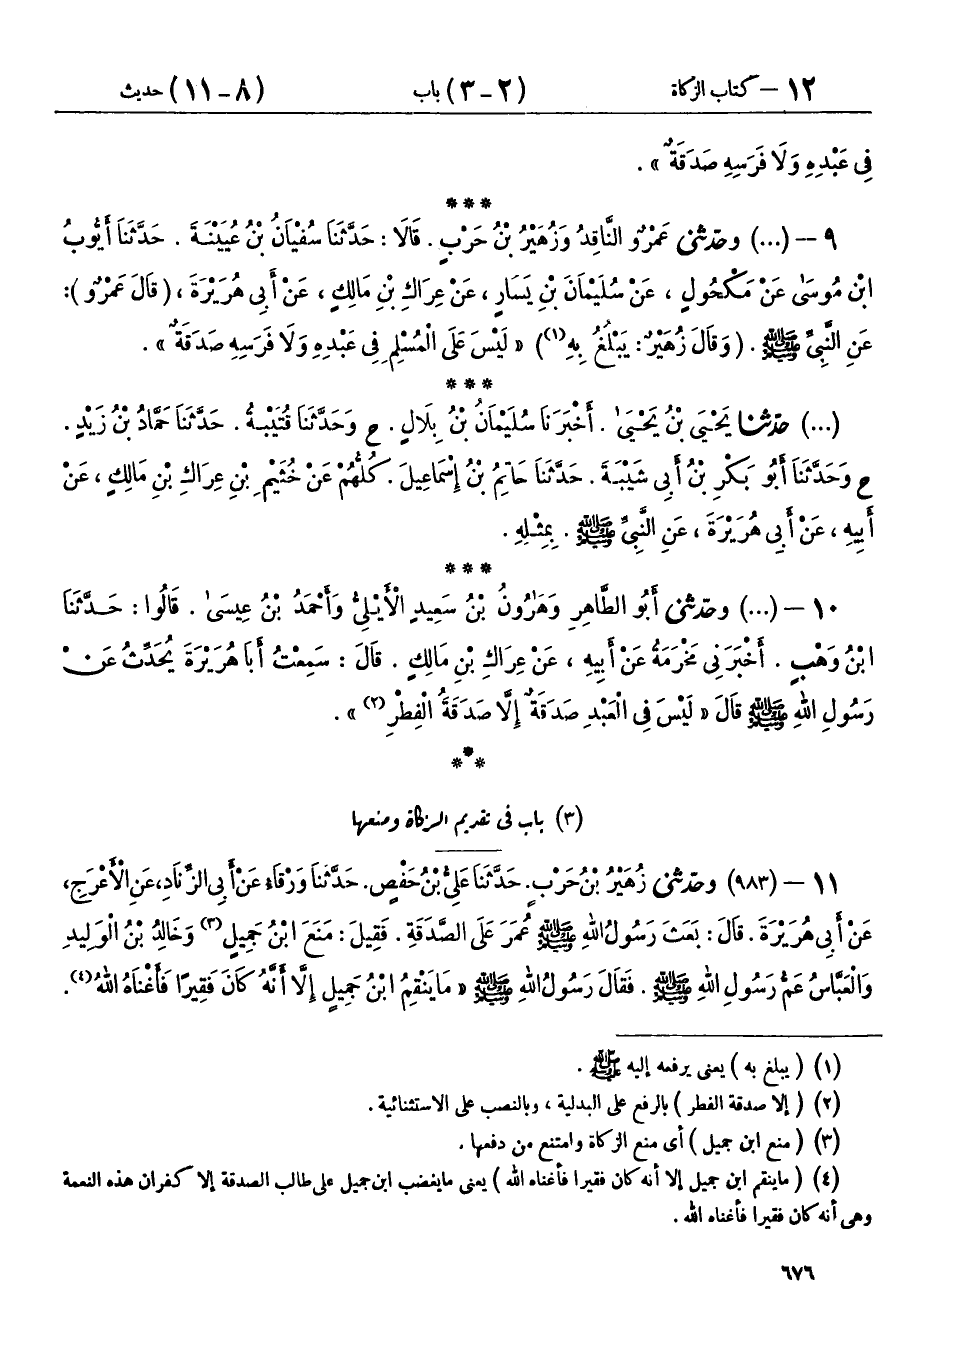 ١٢ – كتاب الزكاة (٢ – ٣) باب (٨ – ١١) حديث
فِى عَبْدِهِ وَلَا فَرَسِهِ صَدَقَةٌ » .
* * *
٩ – (...) وحدّثنى عَمْرٌو النَّاقِدُ وَزُهَيْرُ بْنُ حَرْبٍ . قَالَا : حَدَّثَنَا سُفْيَانُ بْنُ عُيَيْنَةَ . حَدَّثَنَا أَيُّوبُ
ابْنُ مُوسَىٰ عَنْ مَكْحُولٍ ، عَنْ سُلَيْمَانَ بْنِ يَسَارٍ ، عَنْ عِرَاكِ بْنِ مَالِكٍ ، عَنْ أَبِى هُرَيْرَةَ ، ( قَالَ عَمْرٌو ) :
عَنِ النَّبِىِّ ﷺ . ( وَقَالَ زُهَيْرٌ : يَبْلُغُ بِهِ(١) ) « لَيْسَ عَلَى الْمُسْلِمِ فِى عَبْدِهِ وَلَا فَرَسِهِ صَدَقَةٌ » .
* * *
(...) حدّثنا يَحْيَى بْنُ يَحْيَىٰ . أَخْبَرَنَا سُلَيْمَانُ بْنُ بِلَالٍ . ح وَحَدَّثَنَا قُتَيْبَةُ . حَدَّثَنَا حَمَّادُ بْنُ زَيْدٍ .
ح وَحَدَّثَنَا أَبُو بَكْرِ بْنُ أَبِى شَيْبَةَ . حَدَّثَنَا حَاتِمُ بْنُ إِسْمَاعِيلَ . كُلُّهُمْ عَنْ خُثَيْمِ بْنِ عِرَاكِ بْنِ مَالِكٍ ، عَنْ
أَبِيهِ ، عَنْ أَبِى هُرَيْرَةَ ، عَنِ النَّبِىِّ ﷺ . بِمِثْلِهِ .
* * *
١٠ – (...) وحدّثنى أَبُو الطَّاهِرِ وَهَٰرُونُ بْنُ سَعِيدٍ الْأَيْلِىُّ وَأَحْمَدُ بْنُ عِيسَىٰ . قَالُوا : حَدَّثَنَا
ابْنُ وَهْبٍ . أَخْبَرَنِى مَخْرَمَةُ عَنْ أَبِيهِ ، عَنْ عِرَاكِ بْنِ مَالِكٍ . قَالَ : سَمِعْتُ أَبَا هُرَيْرَةَ يُحَدِّثُ عَنْ
رَسُولِ اللهِ ﷺ قَالَ « لَيْسَ فِى الْعَبْدِ صَدَقَةٌ إِلَّا صَدَقَةُ الْفِطْرِ(٢) » .
* * *
(٣) باب فى تقديم الزكاة ومنعها
١١ – (٩٨٣) وحدّثنى زُهَيْرُ بْنُ حَرْبٍ . حَدَّثَنَا عَلِىُّ بْنُ حَفْصٍ . حَدَّثَنَا وَرْقَاءُ عَنْ أَبِى الزِّنَادِ ، عَنِ الْأَعْرَجِ ،
عَنْ أَبِى هُرَيْرَةَ . قَالَ : بَعَثَ رَسُولُ اللهِ ﷺ عُمَرَ عَلَى الصَّدَقَةِ . فَقِيلَ : مَنَعَ ابْنُ جَمِيلٍ(٣) وَخَالِدُ بْنُ الْوَلِيدِ
وَالْعَبَّاسُ عَمُّ رَسُولِ اللهِ ﷺ . فَقَالَ رَسُولُ اللهِ ﷺ « مَا يَنْقِمُ ابْنُ جَمِيلٍ إِلَّا أَنَّهُ كَانَ فَقِيرًا فَأَغْنَاهُ اللهُ(٤) .
(١) ( يبلغ به ) يعنى يرفعه إليه ﷺ .
(٢) ( إلا صدقة الفطر ) بالرفع على البدلية ، وبالنصب على الاستثنائية .
(٣) ( منع ابن جميل ) أى منع الزكاة وامتنع من دفعها .
(٤) ( ما ينقم ابن جميل إلا أنه كان فقيرا فأغناه الله ) يعنى ما يغضب ابن جميل على طالب الصدقة إلا كفران هذه النعمة
وهى أنه كان فقيرا فأغناه الله .
٦٧٦